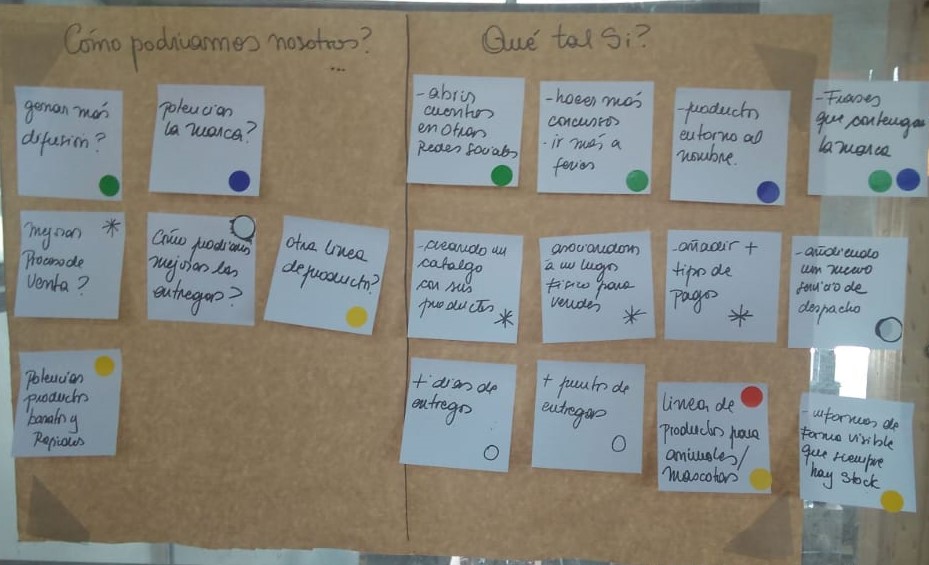 Cómo podriamos nosotros?
...
generar más
difusión?
potenciar
la marca?
mejorar
Proceso de
Venta?
Cómo podriamos
mejorar las
entregas?
otra linea
de producto?
Potenciar
productos
baratos y
Rapidos
Qué tal Si?
-abrir
cuentas
en otras
Redes sociales
-hacer más
concursos
-ir más a
ferias
-productos
entorno al
nombre.
-Frases
que contengan
la marca
-creando un
catalgo
con sus
productos
asociandonos
a un lugar
fisico para
vender
-añadir +
tipo de
pagos
-añadiendo
un nuevo
servicio de
despacho
+ dias de
entregas
+ puntos de
entregas
linea de
productos para
animales/
mascotas
-informar de
forma visible
que siempre
hay stock